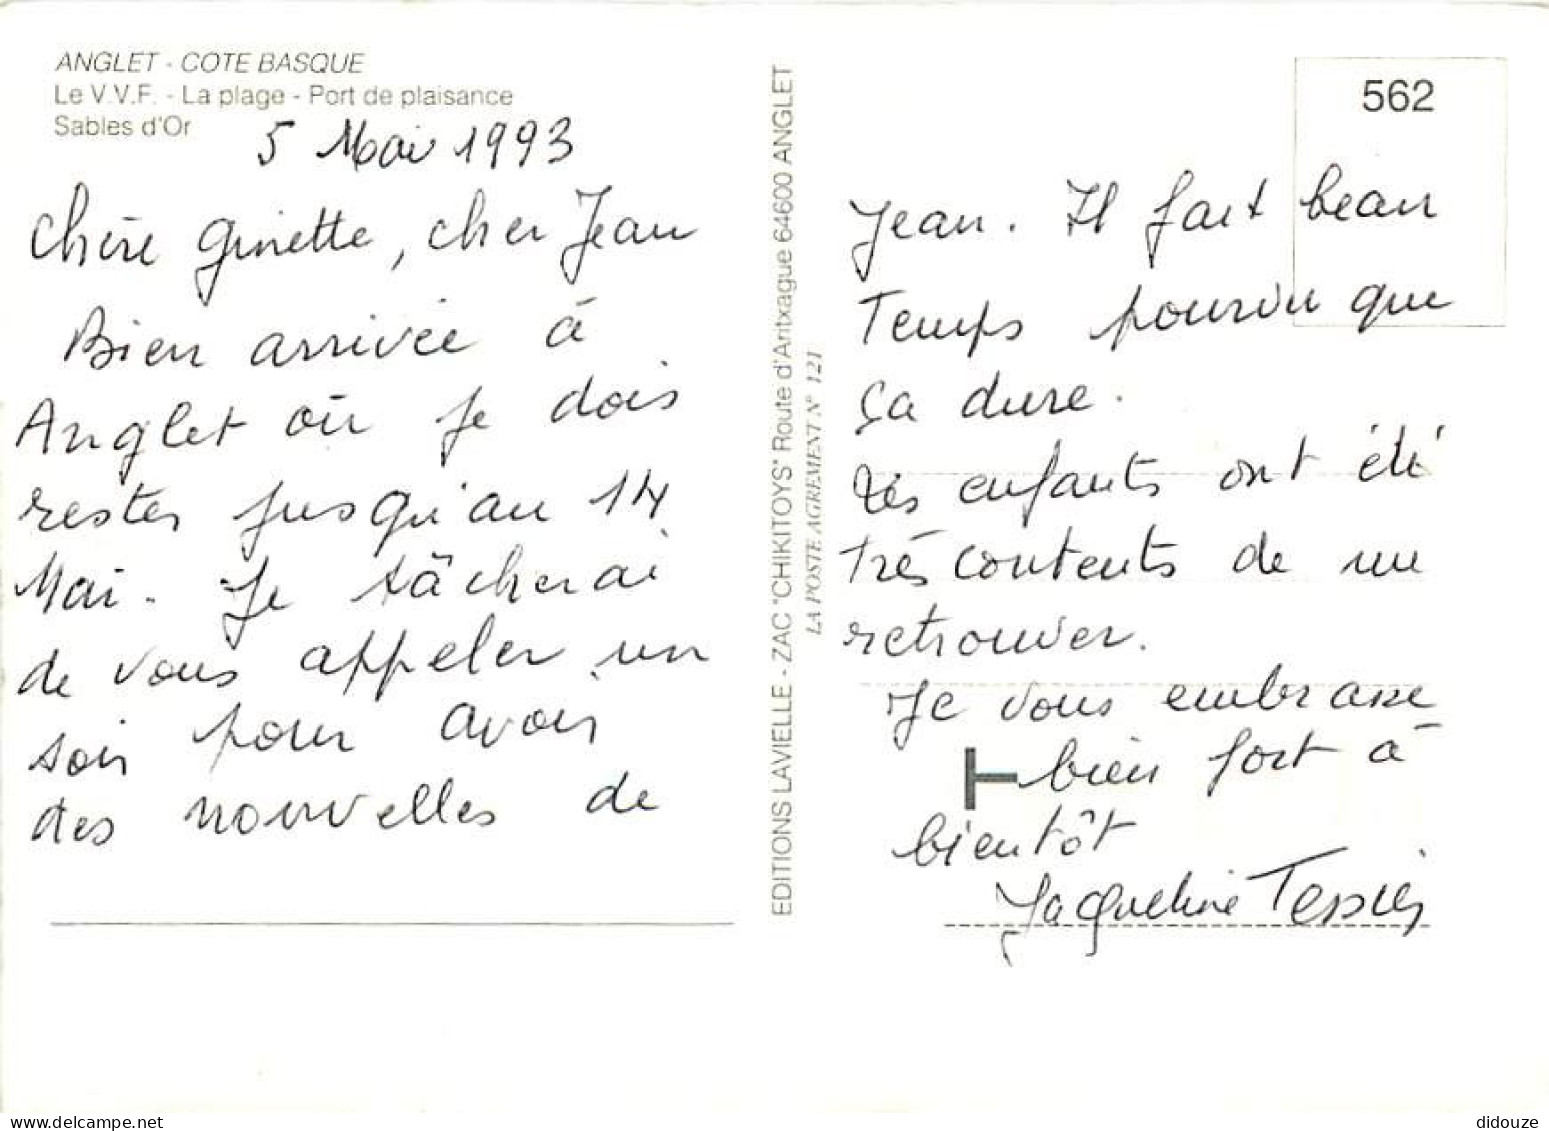 ANGLET - COTE BASQUE
Le V.V.F. - La plage - Port de plaisance
Sables d'Or
5 Mai 1993
Chère Ginette, cher Jean
Bien arrivée à
Anglet où je dois
rester jusqu'au 14
Mai. Je tâcherai
de vous appeler un
soir pour avoir
des nouvelles de
EDITIONS LAVIELLE - ZAC "CHIKITOYS" Route d'Aritxague 64600 ANGLET
LA POSTE AGREMENT N° 121
562
Jean. Il fait beau
Temps pourvu que
ça dure.
Les enfants ont été
très contents de me
retrouver.
Je vous embrasse
bien fort à
bientôt
Jacqueline Tessier
didouze